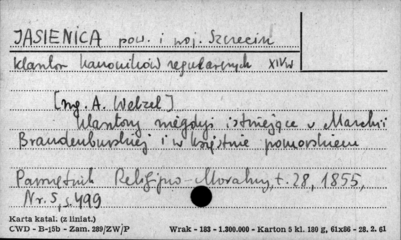 JASIENICA pow. i woj. Szczecin
klasztor kanoników regularnych XIV w
[mg. A. Welzel]
Klasztory niegdyś istniejące w Marchii
Brandenburskiej i w księstwie pomorskiem
Pamiętnik Religijno-Moralny, t. 28, 1855,
Nr. 5, s. 499
Karta katal. (z liniat.)
CWD - B-15b - Zam. 289/ZW/P Wrak - 183 - 1.300.000 - Karton 5 kl. 180 g, 61x86 - 28. 2. 61